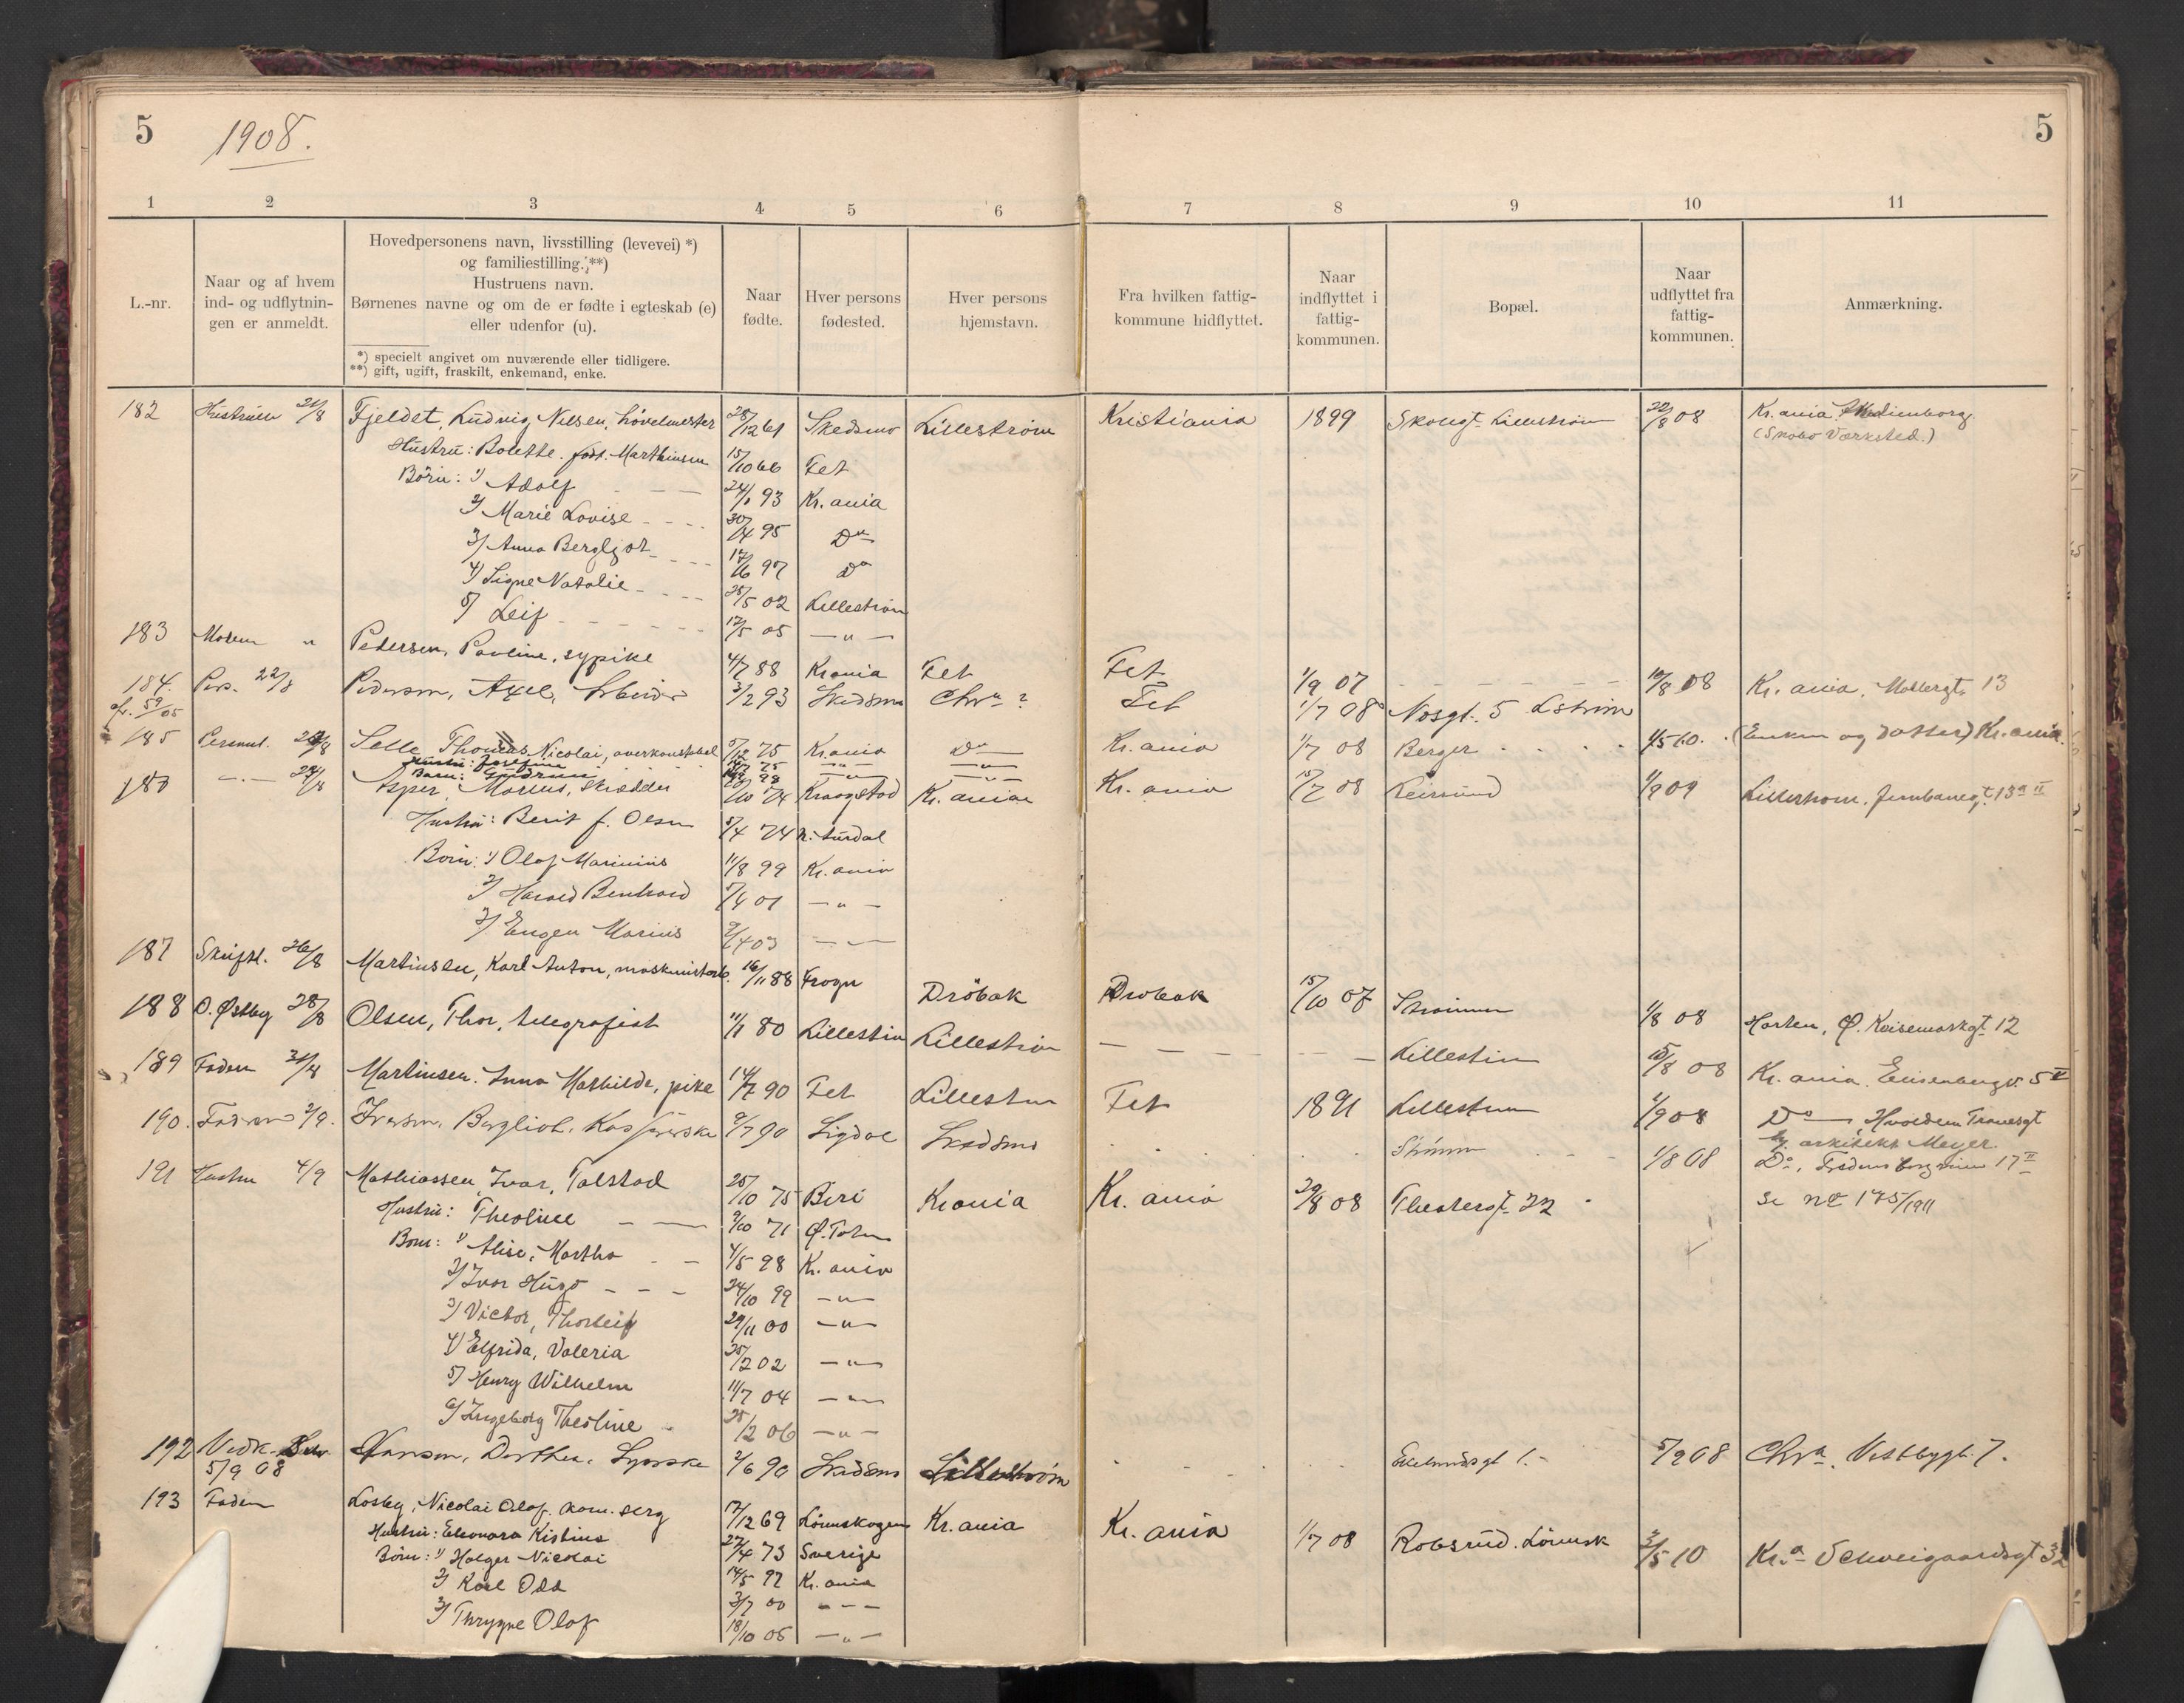 5
1908.
5
1 2 3 4 5 6 7 8 9 10 11
L.-nr.
Naar og af hvem
ind- og udflytnin-
gen er anmeldt.
Hovedpersonens navn, livsstilling (levevei) *)
og familiestilling. **)
Hustruens navn.
Børnenes navne og om de er fødte i egteskab (e)
eller udenfor (u).
*) specielt angivet om nuværende eller tidligere.
**) gift, ugift, fraskilt, enkemand, enke.
Naar
fødte.
Hver persons
fødested.
Hver persons
hjemstavn.
Fra hvilken fattig-
kommune hidflyttet.
Naar
indflyttet i
fattig-
kommunen.
Bopæl.
Naar
udflyttet fra
fattig-
kommunen.
Anmærkning.
182 Hustruen 21/8 Fjeldet, Ludvig Nilsen, høvelmester 28/12 61 Skedsmo Lillestrøm Kristiania 1899 Skolegt. Lillestrøm 22/8 08 Kr.ania
(Skabo Værksted.)
Hustru: Bolette. født. Marthinsen 15/10 66 Fet
Børn: 1) Adolf 24/1 93 Kr.ania
2) Marie Lovise 30/4 95 Do
3) Anna Bergljot 17/6 97 Do
4) Signe Natalie 25/5 02 Lillestrøm
5) Leif 12/5 05 — " —
183 Moderen " Pedersen, Pauline, sypike 4/7 88 Kr.ania Fet Fet 1/9 07 10/8 08 Kr.ania, Møllergt. 13
184. Pers. 22/8 Pedersen, Axel, Arbeider 3/2 93 Skedsmo Chr.a ? Fet 1/7 08 Nosgt. 5 Lstrøm
fr. 59/05
185 Personl. Selle Thomas Nicolai, overkonstabel 5/12 75 Kr.ania Do Kr.ania 1/7 08 Berger 1/5 10. (Enken og datter) Kr.ania.
Hustru: Josefine 75 — " — — " —
Barn: Gudrun 98 — " — — " —
186 — " — 24/8 Asper, Marius, skrædder 20/10 74 Kraagstad Kr.ania Kr.ania 15/7 08 Leirsund 1/9 09 Lillestrøm, Jernbanegt. 13a II
Hustru: Berit f. Olsen 5/4 74 n. Aurdal
Børn: 1) Olaf Marinius 11/8 99 Kr.ania
2) Harald Bernhard 5/4 01 — " —
3) Eugen Marius 9/4 03 — " —
187 Skriftl. 26/8 Martinsen, Karl Anton, maskinistarb. 16/11 88 Frogn Drøbak Drøbak 15/10 07 Strømmen 1/8 08 Horten, Ø. Keisemarkgt. 12
188 O. Østby 28/8 Olsen, Thor, telegrafist 11/1 80 Lillestrøm Lillestrøm — — — Lillestrøm 15/8 08 Kr.ania. Eilsenbergv. 5 V
189 Faderen 31/8 Martinsen. Anna Mathilde, pike 14/7 90 Fet Lillestrøm Fet 1891 Lillestrøm 1/9 08 Do — Tranesgt
hj. arkitekt Meyer.
190. Faderen 2/9. Iversen, Bergliot, Kasserske 9/7 90 Sigdal Skedsmo Strømmen 1/8 08 Do, Fredensborgveien 17 II
191 Hustru 4/9 Mathiassen, Ivar, Tolstad 25/10 75 Biri Kr.ania Kr.ania 29/8 08 Theatergt. 22 se no 175/1911
Hustru: Theoline 9/10 71 Ø. Toten
Børn: 1) Alise, Martha 4/5 98 Kr.ania
2) Ivar Hugo 24/10 99 — " —
3) Victor, Thorleif 29/11 00 — " —
4) Elfrida, Valeria 25/12 02 — " —
5) Henry Wilhelm 11/7 04 — " —
6) Ingeborg Theoline 25/12 06 — " —
192 Vedk. Hansen, Dorthea, Syerske 2/6 90 Skedsmo Lillestrøm gt 1. 5/9 08 Chr.a. Vestbygt. 7.
5/9 08
193 Faderen Losby, Nicolai Olaf. kom. serg 17/12 69 Lørenskogen Kr.ania Kr.ania 1/7 08 Robsrud. Lørensk 3/5 10 Kr.a Schweigaardsgt 32
Hustru: Eleonora Kistina 27/4 73 Sverige
Børn: 1) Holger Nicolai 14/5 97 Kr.ania
2) Karl Odd 3/7 00 — " —
3) Thrygve Olaf 18/10 05 — " —